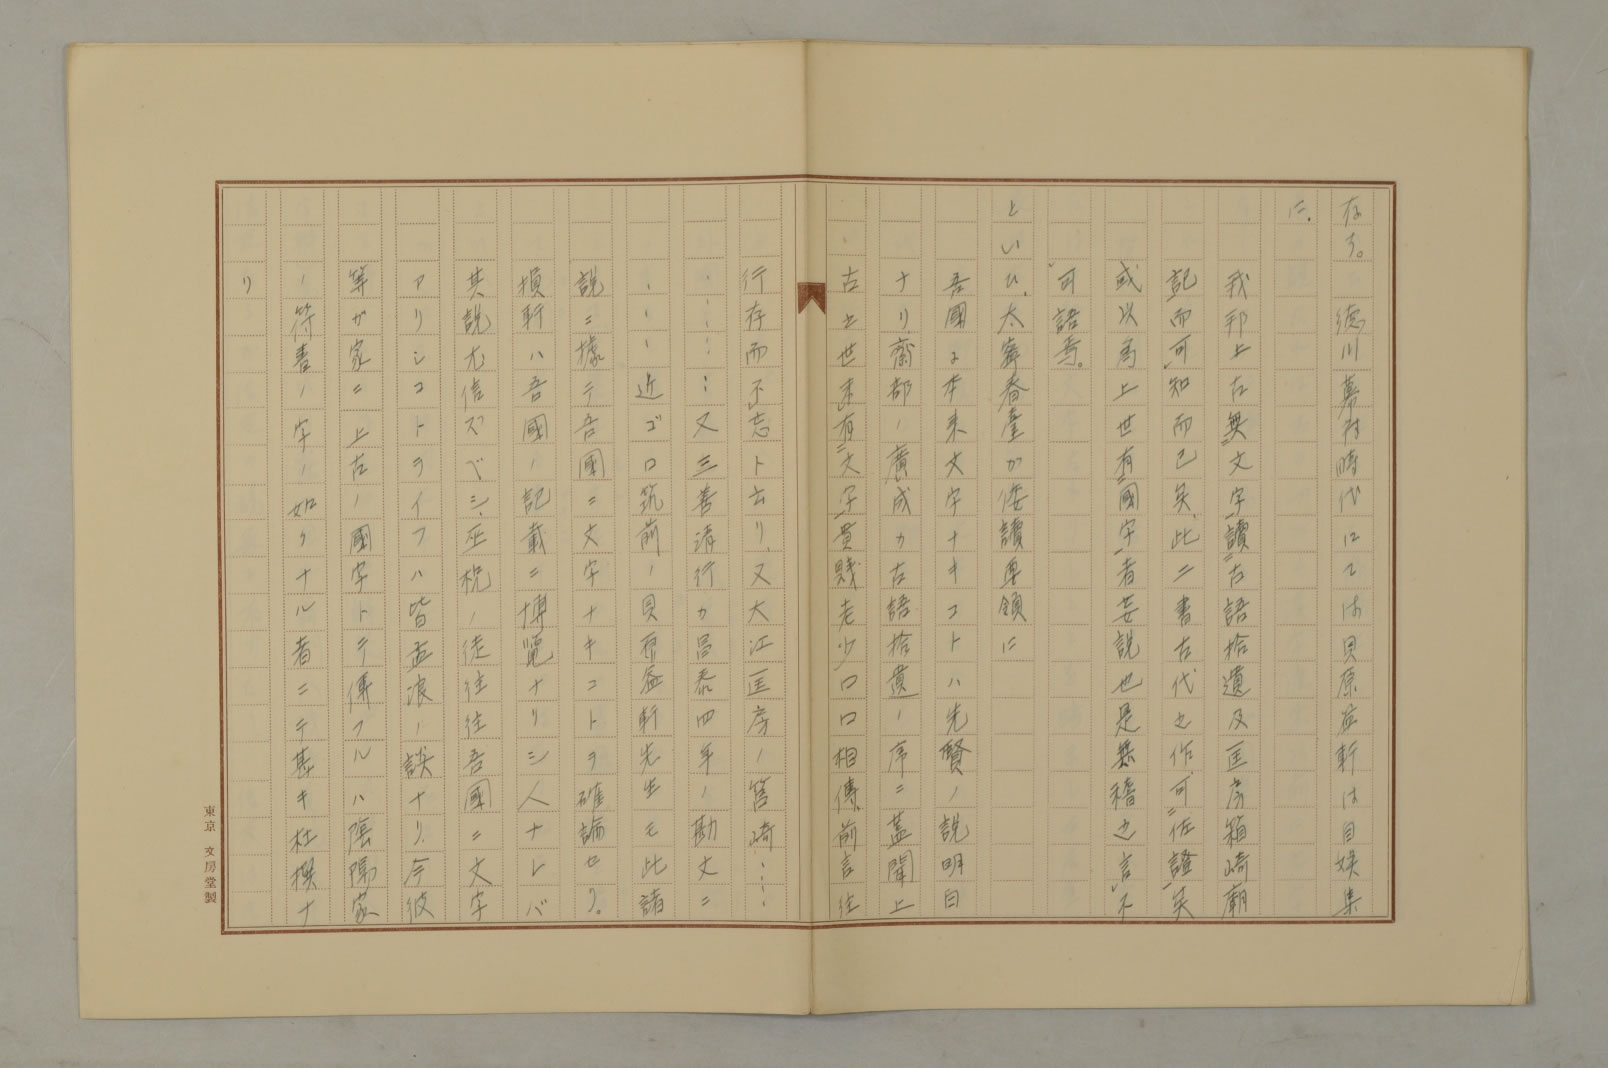 存す。 徳川幕府時代にては貝原益軒は自娯集
に、
我邦上古無文字讀古語拾遺及匡房箱崎廟
記而可知而已矣、此二書古代之作可佐證矣
或以爲上世有國字者妄説也是無稽之言不
可語焉。
といひ、太宰春臺が倭讀要領に
吾國ニ本来文字ナキコトハ先賢ノ説明白
ナリ齋部ノ廣成カ古語拾遺ノ序ニ蓋聞上
古之世未有文字貴賤老少口口相傳、前言往
行存而不忘ト云リ、又大江匡房ノ筥崎……
……又三善清行カ昌泰四年ノ勘文ニ
……近ゴロ筑前ノ貝原益軒先生モ此諸
説ニ據テ吾國ニ文字ナキコトヲ確論セリ。
損軒ハ吾國ノ記載ニ博覧ナリシ人ナレバ
其説尤信ズベシ、巫祝ノ徒往往吾國ニ文字
アリシコトヲイフハ皆孟浪ノ談ナリ、今彼
等ガ家ニ上古ノ國字トテ傳フルハ陰陽家
ノ符書ノ字ノ如クナル者ニテ甚キ杜撰ナ
リ
東京 文房堂製